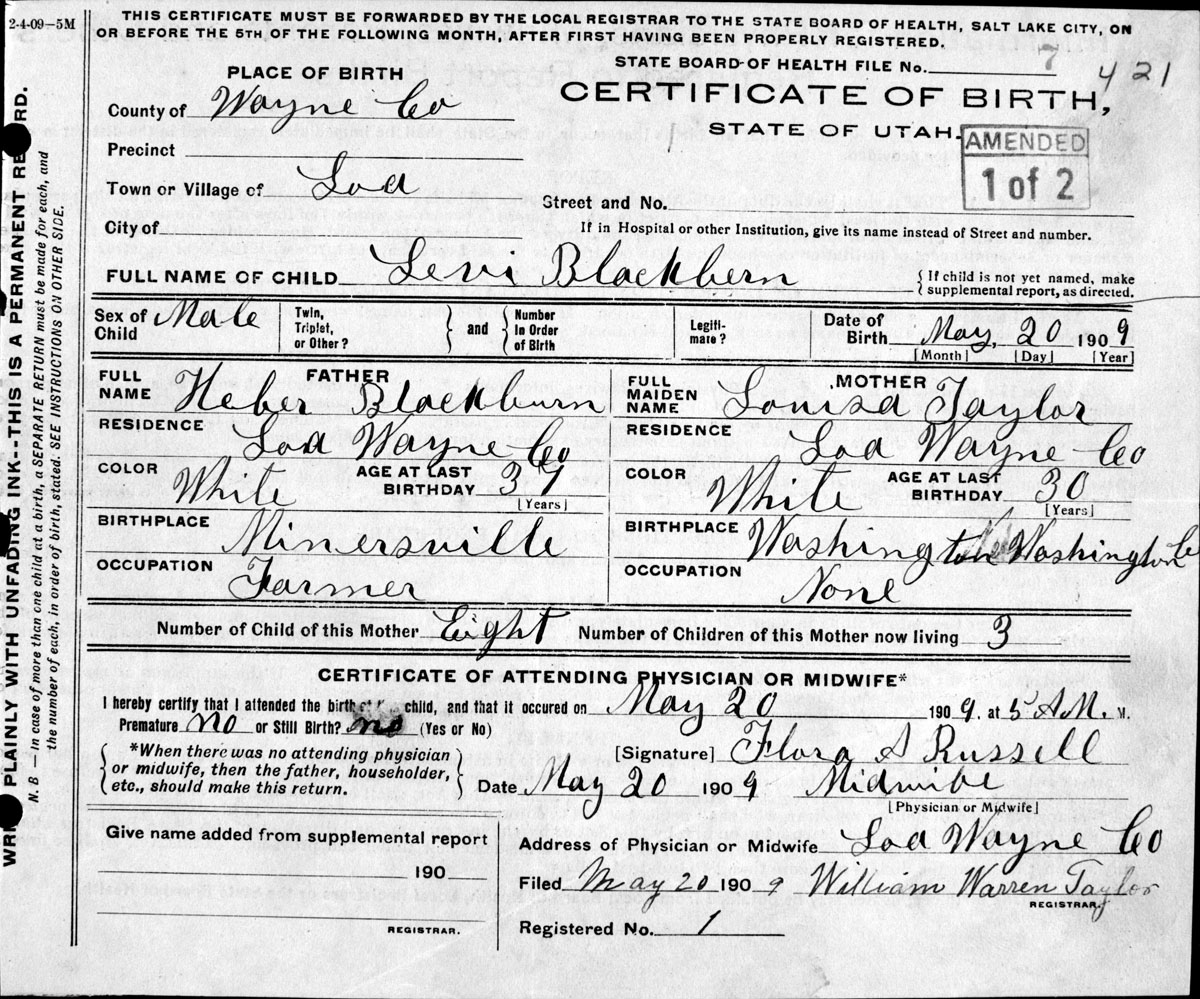 2-4-09—5M
THIS CERTIFICATE MUST BE FORWARDED BY THE LOCAL REGISTRAR TO THE STATE BOARD OF HEALTH, SALT LAKE CITY, ON
OR BEFORE THE 5TH OF THE FOLLOWING MONTH, AFTER FIRST HAVING BEEN PROPERLY REGISTERED.
STATE BOARD OF HEALTH FILE No. 7 421
PLACE OF BIRTH
CERTIFICATE OF BIRTH,
STATE OF UTAH.
AMENDED
1 of 2
County of Wayne Co
Precinct
Town or Village of Loa
Street and No.
City of
If in Hospital or other Institution, give its name instead of Street and number.
FULL NAME OF CHILD Levi Blackbern
{ If child is not yet named, make
supplemental report, as directed.
Sex of Child Male
Twin, Triplet, or Other? } and { Number in Order of Birth
Legiti-mate?
Date of Birth May, 20 1909
[Month] [Day] [Year]
FATHER
FULL NAME Heber Blackburn
RESIDENCE Loa Wayne Co
COLOR White AGE AT LAST BIRTHDAY 37
[Years]
BIRTHPLACE Minersville
OCCUPATION Farmer
MOTHER
FULL MAIDEN NAME Louisa Taylor
RESIDENCE Loa Wayne Co
COLOR White AGE AT LAST BIRTHDAY 30
[Years]
BIRTHPLACE Washington Washington Co
OCCUPATION None
Number of Child of this Mother Eight Number of Children of this Mother now living 3
CERTIFICATE OF ATTENDING PHYSICIAN OR MIDWIFE*
I hereby certify that I attended the birth child, and that it occured on May 20 1909, at 5 A.M. M.
Premature no or Still Birth? no (Yes or No)
{ *When there was no attending physician
or midwife, then the father, householder,
etc., should make this return. }
[Signature] Flora A Russell
Date May 20 1909 Midwife
[Physician or Midwife]
Give name added from supplemental report
190
REGISTRAR.
Address of Physician or Midwife Loa Wayne Co
Filed May 20 1909 William Warren Taylor
REGISTRAR.
Registered No. 1
PLAINLY WITH UNFADING INK--THIS IS A PERMANENT
N. B —In case of more than one child at a birth, a SEPARATE RETURN must be made for each, and
the number of each, in order of birth, stated. SEE INSTRUCTIONS ON OTHER SIDE.